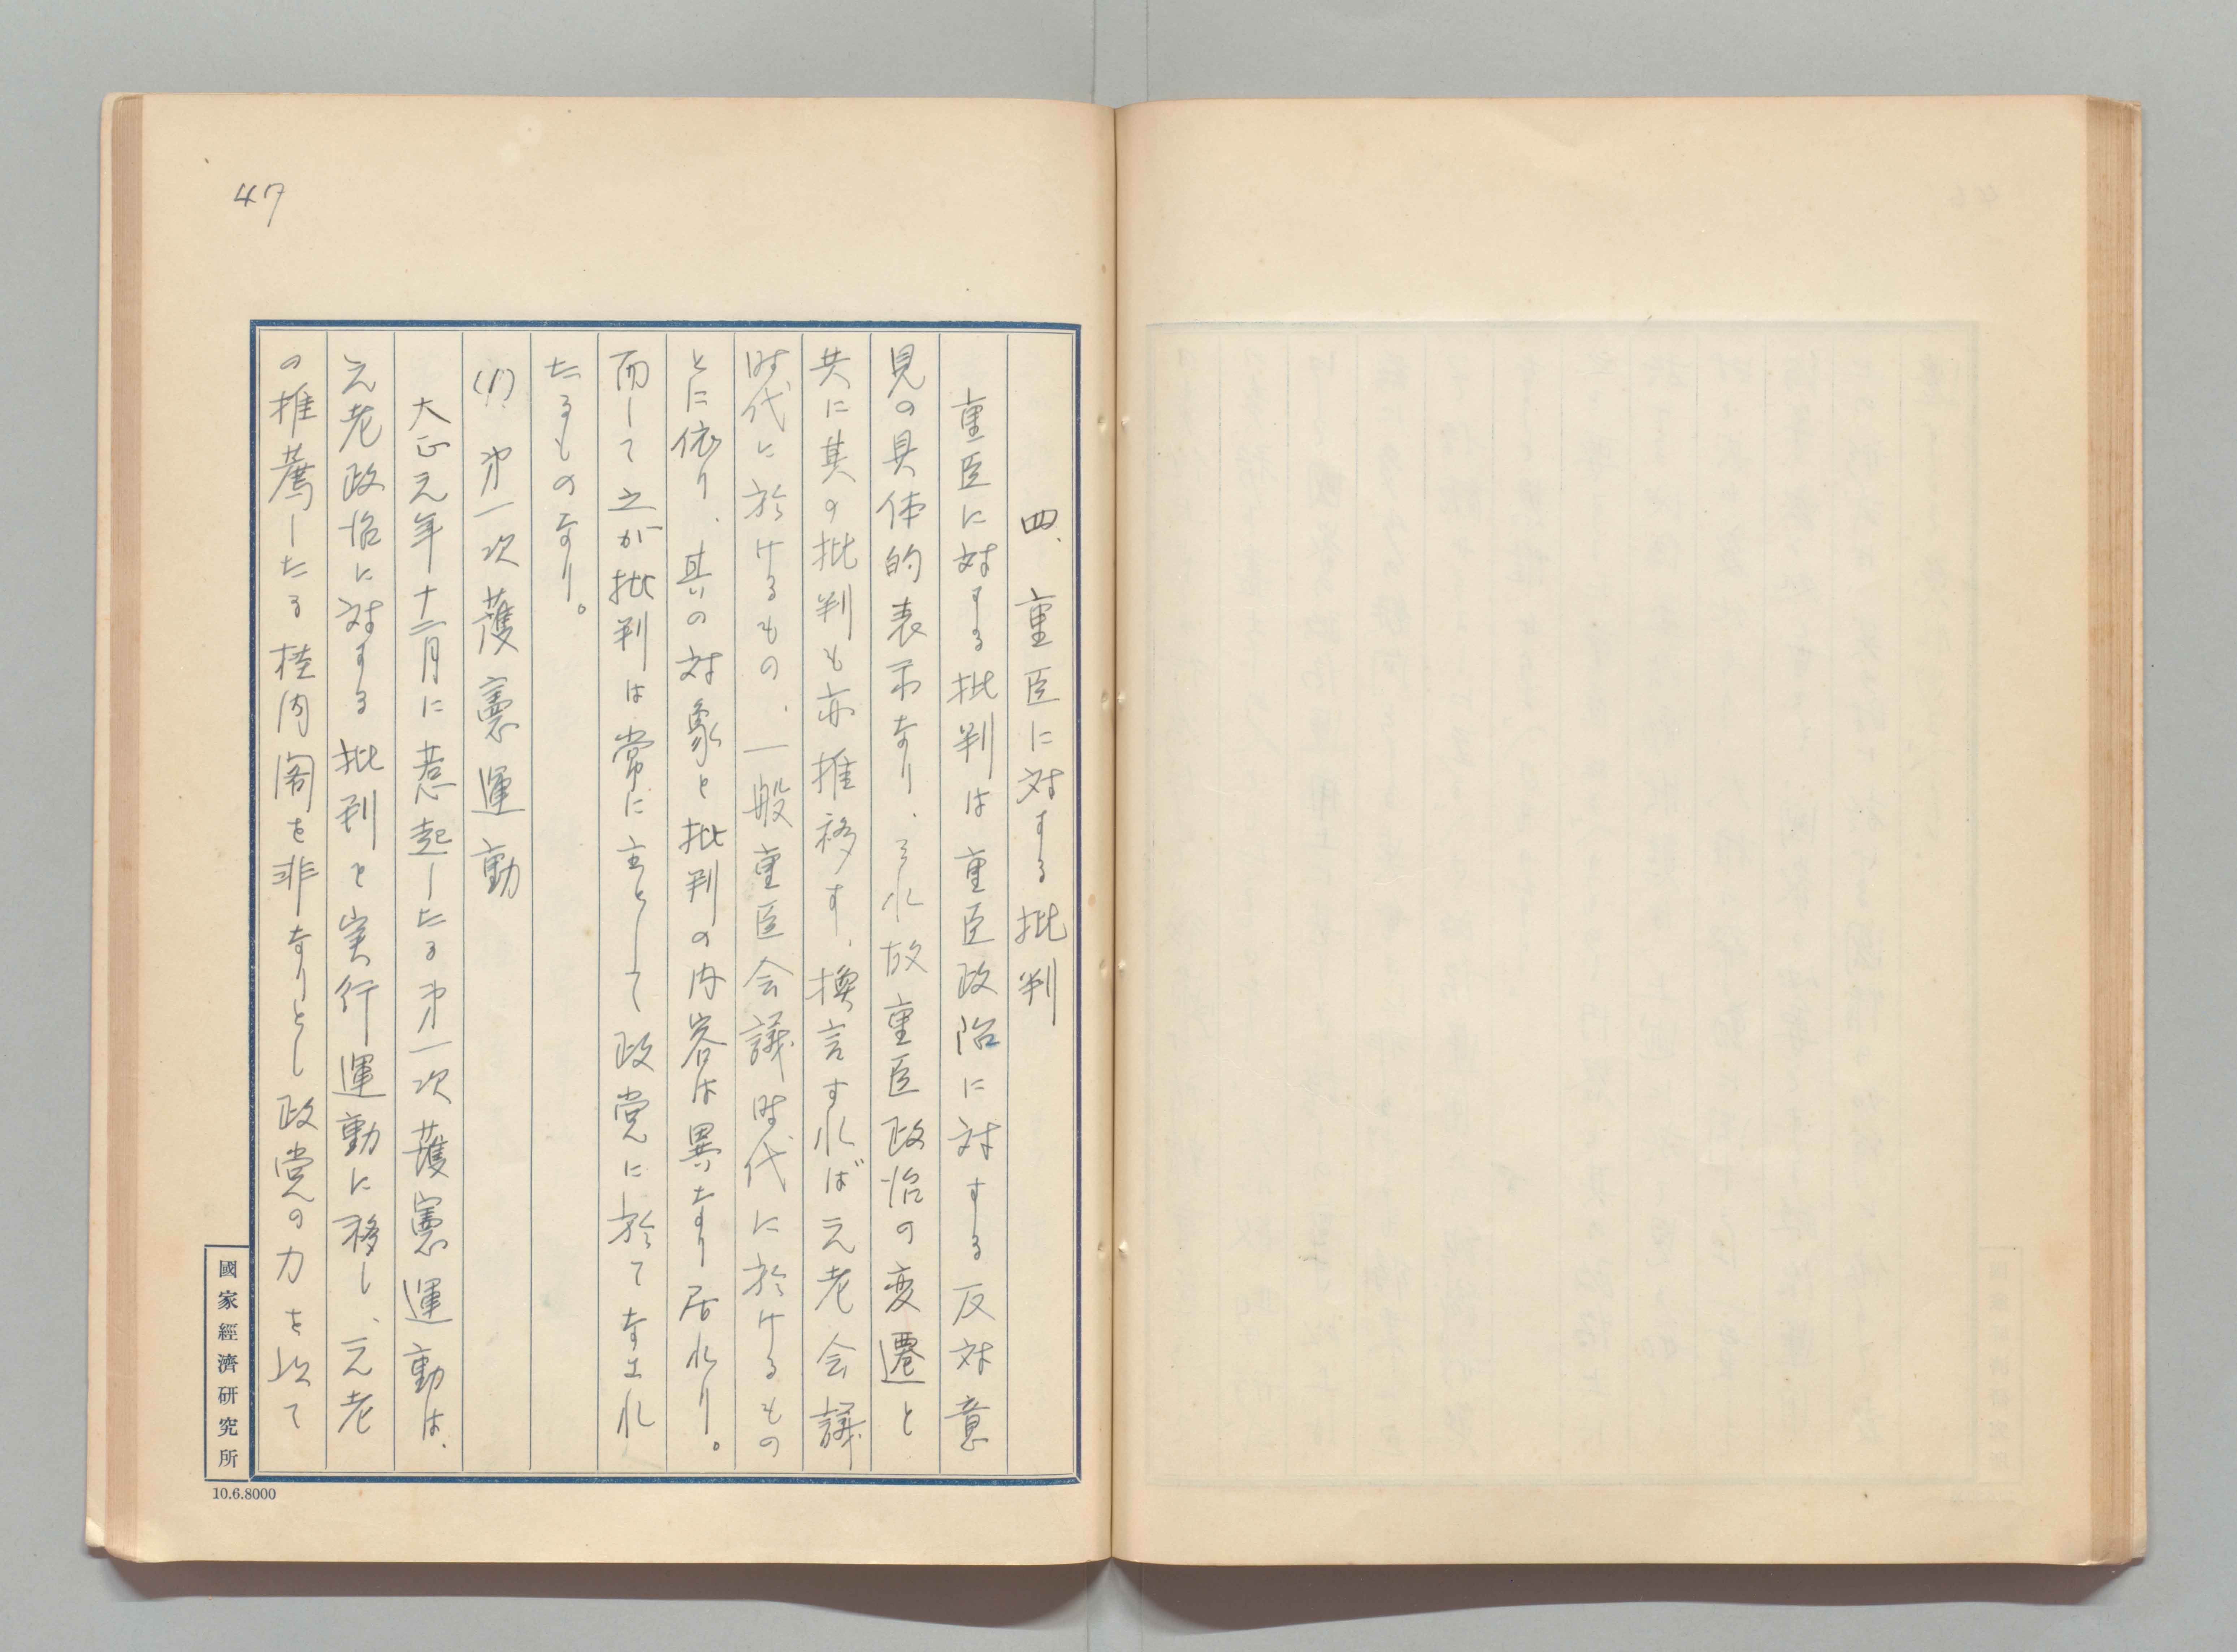 47
四、重臣に対する批判
重臣に対する批判は重臣政治に対する反対意
見の具体的表示なり、それ故重臣政治の変遷と
共に其の批判も亦推移す、換言すれば元老会議
時代に於けるもの、一般重臣会議時代に於けるもの
とに依り、其の対象と批判の内容は異なり居れり。
而して之が批判は常に主として政党に於てなされ
たるものなり。
(1) 第一次護憲運動
大正元年十二月に惹起したる第一次護憲運動は、
元老政治に対する批判を実行運動に移し、元老
の推薦したる桂内閣を非なりとし政党の力を以て
國家經濟研究所
10.6.8000